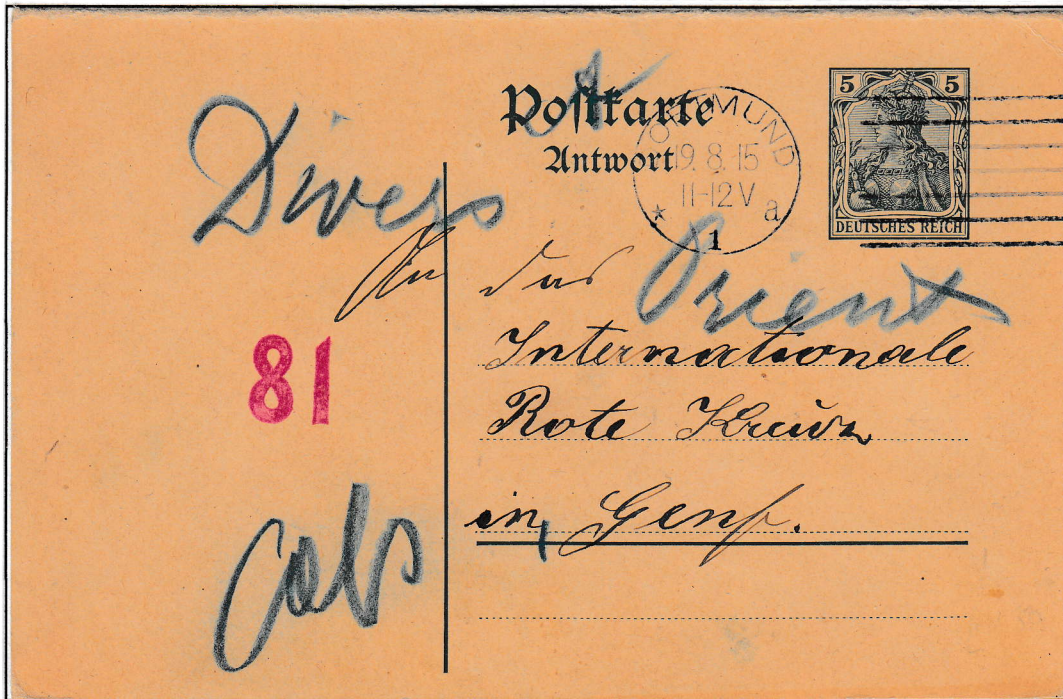 Postkarte
Antwort
DORTMUND
19.8.15
11-12V
* 1 a
5 5
DEUTSCHES REICH
Divers
Orient
An das
Internationale
Rote Kreuz
in Genf.
81